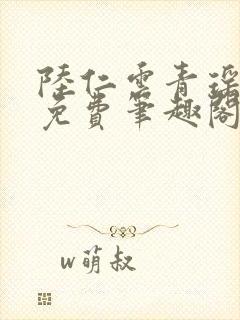 陸仁雲青瑤
免費筆趣閣
w萌叔